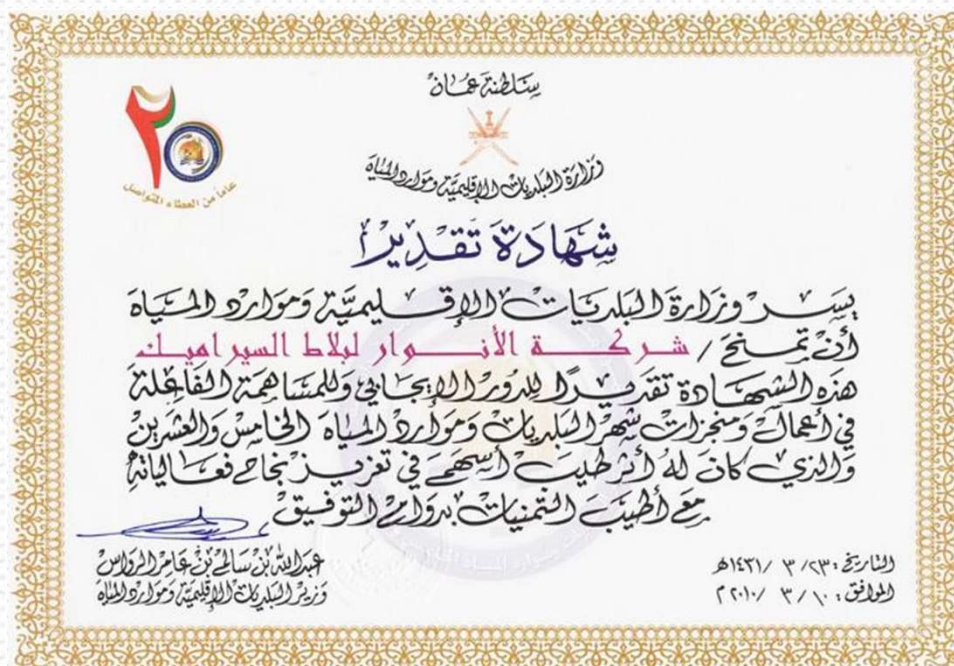 سلطنة عمان
٢٠
عاماً من العطاء المتواصل
وزارة البلديات الإقليمية وموارد المياه
شهادة تقدير
يسر وزارة البلديات الإقليمية وموارد المياه
أن تمنح / شركة الأنوار لبلاط السيراميك
هذه الشهادة تقديرًا للدور الإيجابي وللمساهمة الفاعلة
في أعمال ومنجزات شهر البلديات وموارد المياه الخامس والعشرين
والذي كان له أثر طيب أسهم في تعزيز نجاح فعالياته
مع أطيب التمنيات بدوام التوفيق
عبدالله بن سالم بن عامر الرواس
وزير البلديات الإقليمية وموارد المياه
التاريخ : ٢٣/ ٣ /١٤٣١هـ
الموافق : ١٠/ ٣ /٢٠١٠م